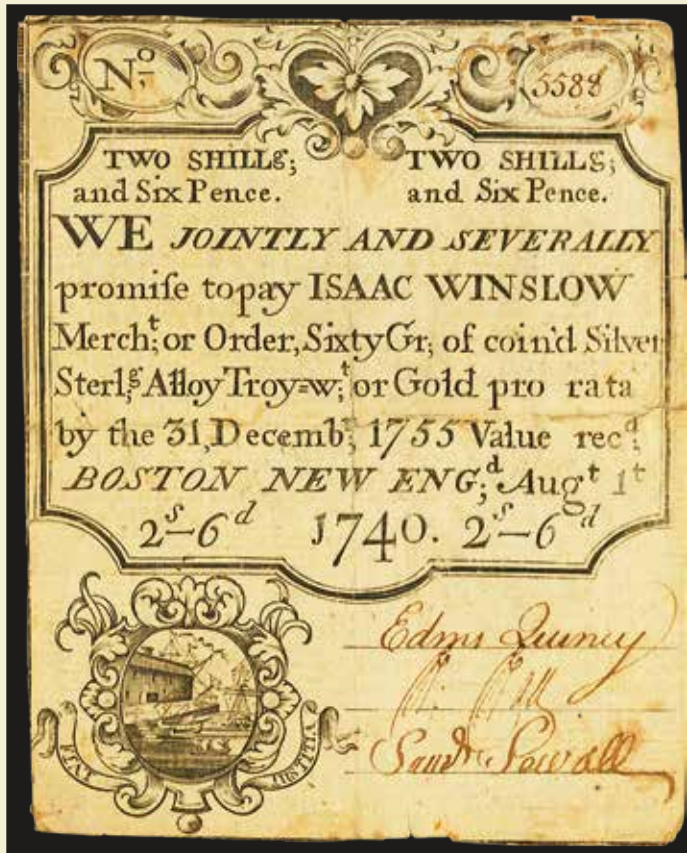 No. 5588
TWO SHILLS; TWO SHILLS;
and Six Pence. and Six Pence.
WE JOINTLY AND SEVERALLY
promiſe to pay ISAAC WINSLOW
Mercht; or Order, Sixty Gr; of coin'd Silver
Sterlg; Alloy Troy=wt; or Gold pro rata
by the 31, Decembr; 1755 Value recd;
BOSTON NEW ENG;d Augt 1t
2s–6d 1740. 2s–6d
Edmd Quincy
FIAT JUSTITIA